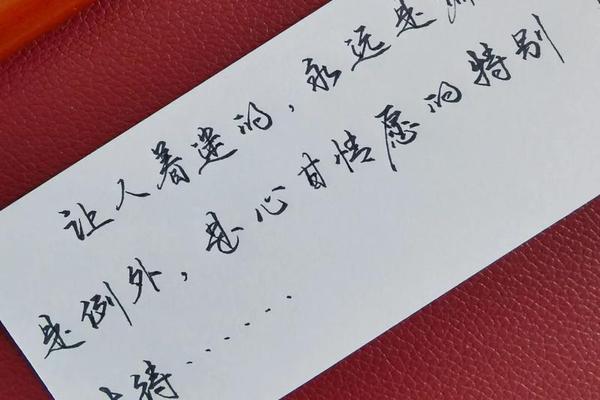 让人着迷的，永远是
是例外，是心甘情愿的特别
待······